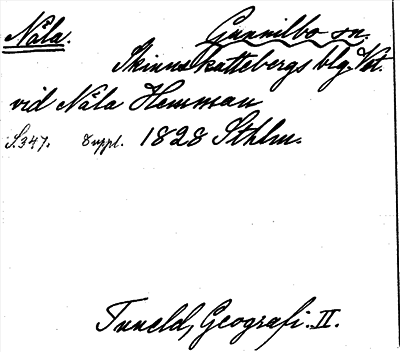 Nåla. Gunnilbo sn.
Skinnskattebergs blg. Vst.
vid Nåla Hemman
S.347. Suppl. 1828 Sthlm.
Tuneld, Geografi. II.